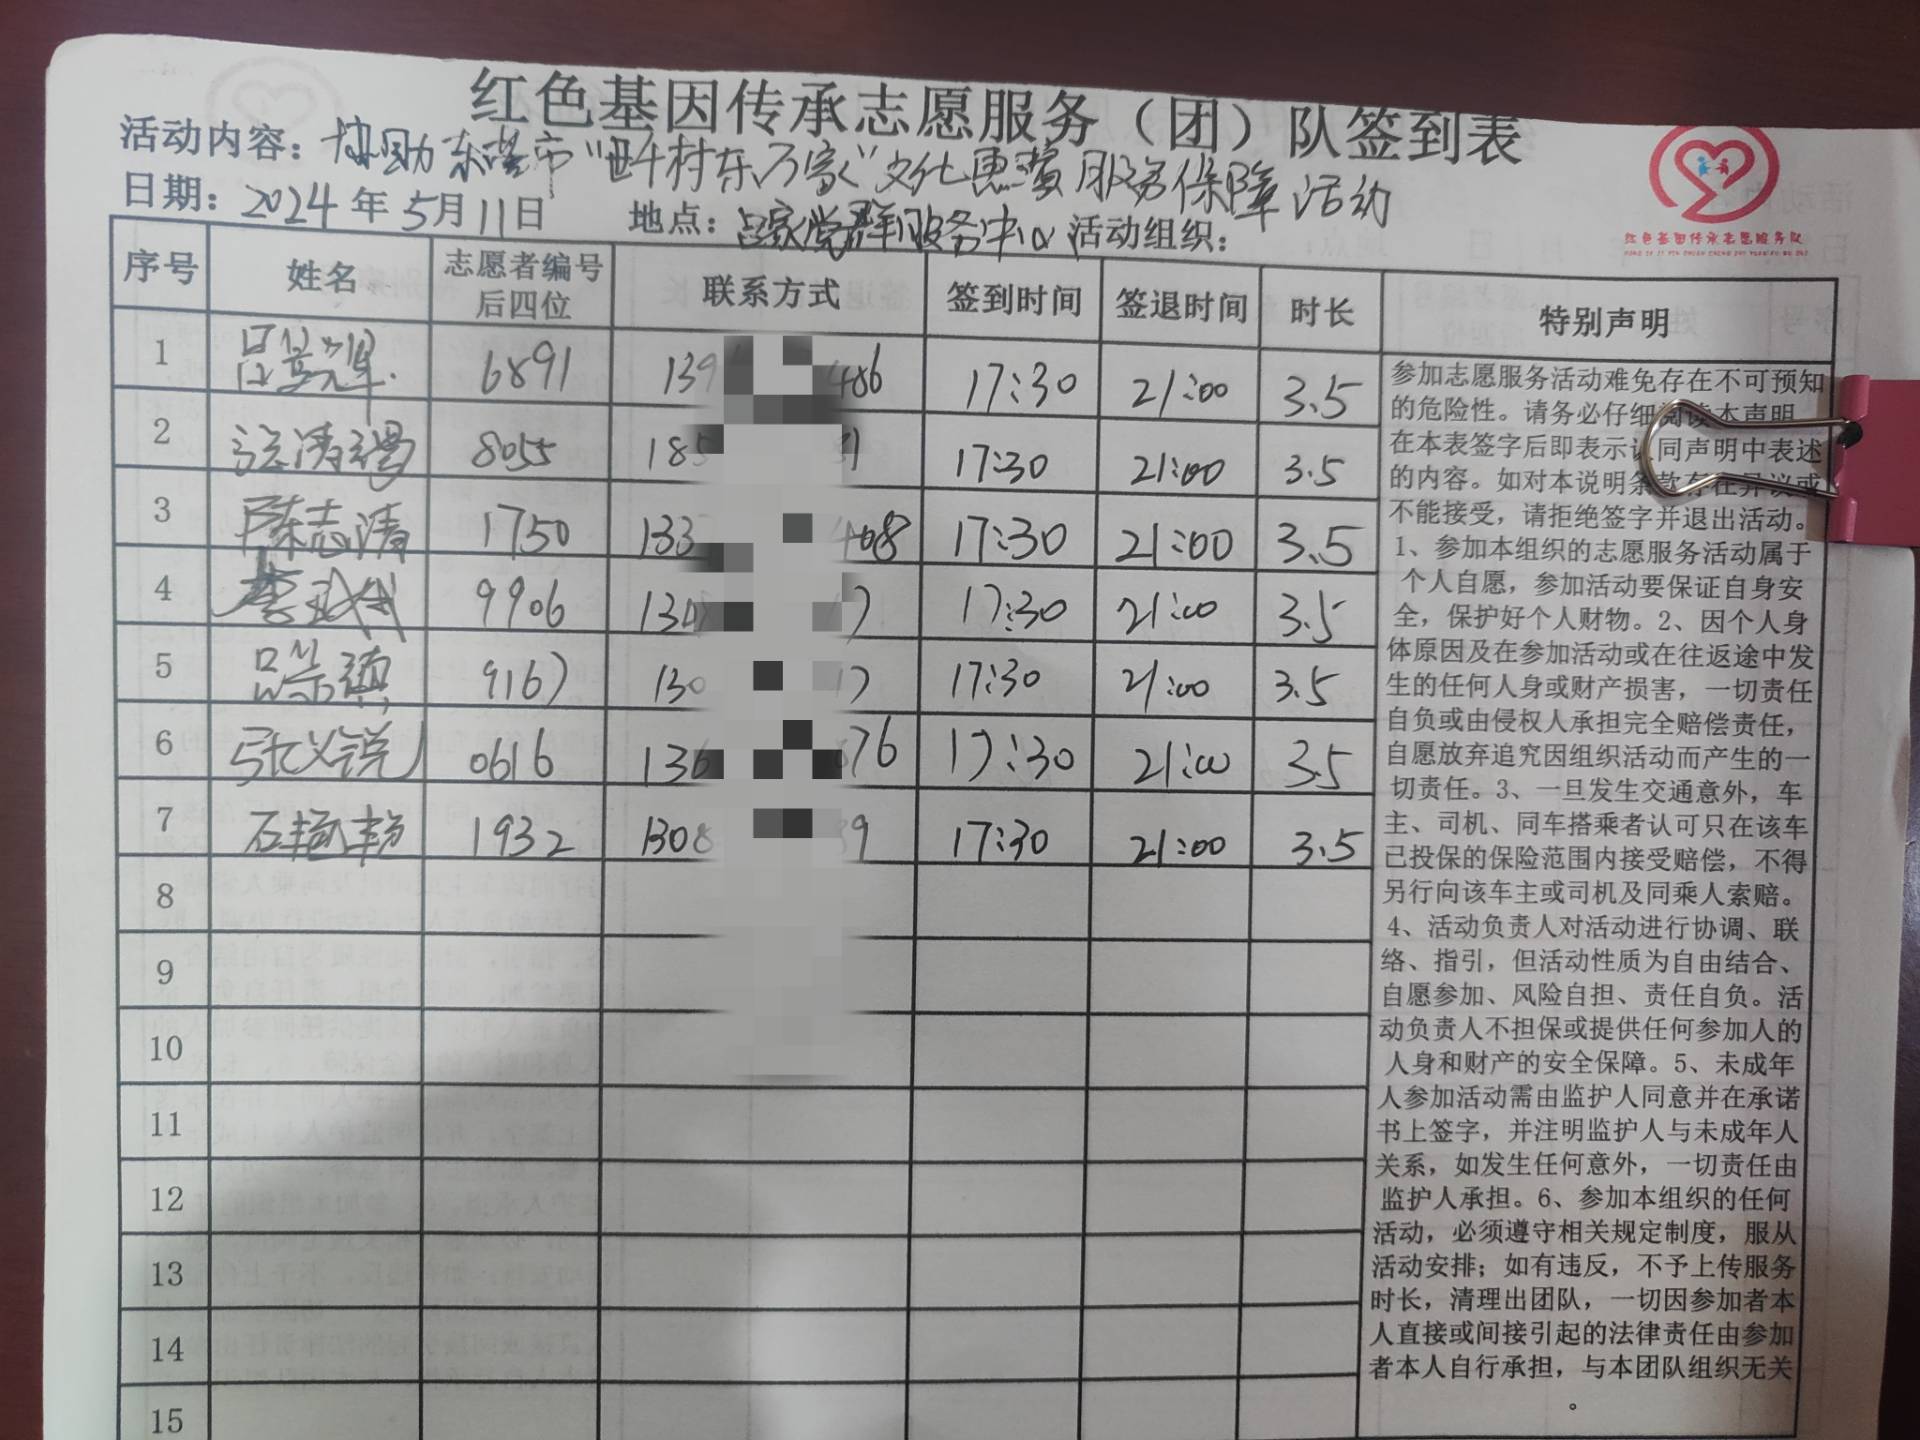 红色基因传承志愿服务（团）队签到表
活动内容：协助东营市“千村万家”文化惠 服务保障活动
日期：2024年5月11日 地点：吕家党群服务中心 活动组织：
红色基因传承志愿服务队
序号 姓名 志愿者编号后四位 联系方式 签到时间 签退时间 时长 特别声明
1 吕 6891 139 486 17:30 21:00 3.5
2 8055 185 31 17:30 21:00 3.5
3 陈志清 1750 133 408 17:30 21:00 3.5
4 李 9906 17:30 21:00 3.5
5 吕 9167 130 17 17:30 21:00 3.5
6 张义锐 0616 136 876 17:30 21:00 3.5
7 石艳 1932 1308 89 17:30 21:00 3.5
8
9
10
11
12
13
14
15
参加志愿服务活动难免存在不可预知
的危险性。请务必仔细阅读本声明，
在本表签字后即表示认同声明中表述
的内容。如对本说明条款存在异议或
不能接受，请拒绝签字并退出活动。
1、参加本组织的志愿服务活动属于
个人自愿，参加活动要保证自身安
全，保护好个人财物。2、因个人身
体原因及在参加活动或在往返途中发
生的任何人身或财产损害，一切责任
自负或由侵权人承担完全赔偿责任，
自愿放弃追究因组织活动而产生的一
切责任。3、一旦发生交通意外，车
主、司机、同车搭乘者认可只在该车
已投保的保险范围内接受赔偿，不得
另行向该车主或司机及同乘人索赔。
4、活动负责人对活动进行协调、联
络、指引，但活动性质为自由结合、
自愿参加、风险自担、责任自负。活
动负责人不担保或提供任何参加人的
人身和财产的安全保障。5、未成年
人参加活动需由监护人同意并在承诺
书上签字，并注明监护人与未成年人
关系，如发生任何意外，一切责任由
监护人承担。6、参加本组织的任何
活动，必须遵守相关规定制度，服从
活动安排；如有违反，不予上传服务
时长，清理出团队，一切因参加者本
人直接或间接引起的法律责任由参加
者本人自行承担，与本团队组织无关
。